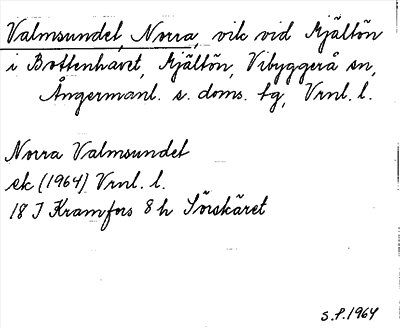 Valmsundet, Norra, vik vid Mjältön
i Bottenhavet, Mjältön, Vibyggerå sn,
Ångermanl. s. doms. tg, Vrnl. l.
Norra Valmsundet
ek (1964) Vrnl. l.
18 I Kramfors 8 h Sörskäret
S.P. 1964